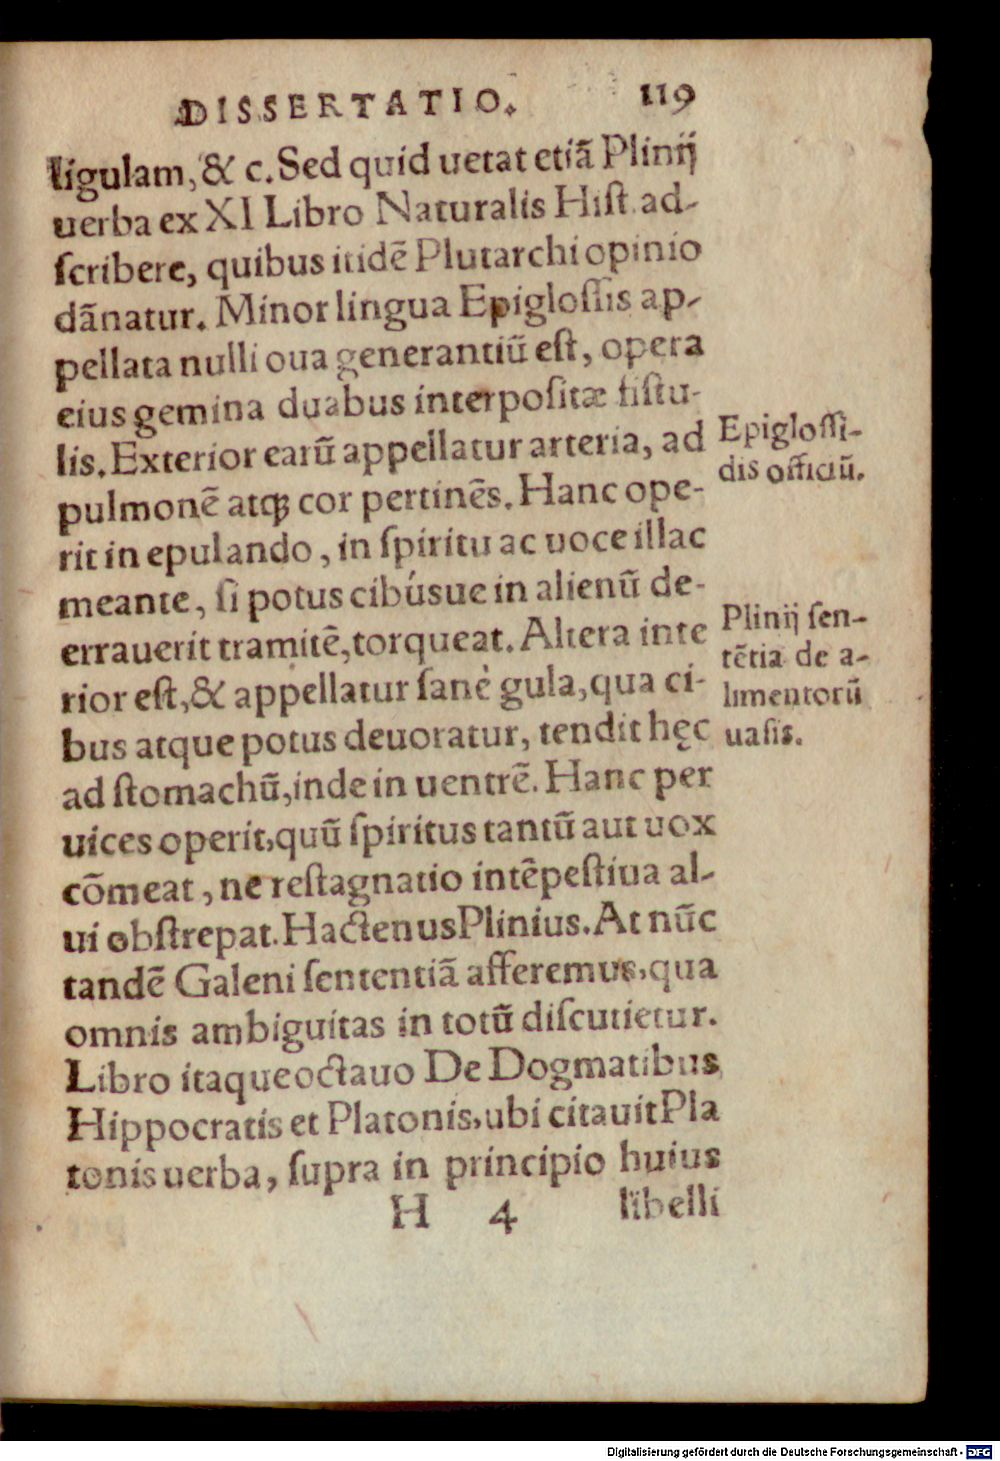 DISSERTATIO. 119
ligulam, & c. Sed quid uetat etiã Plinij
uerba ex XI Libro Naturalis Hiſt. ad-
ſcribere, quibus itidẽ Plutarchi opinio
dãnatur. Minor lingua Epigloſſis ap-
pellata nulli oua generantiũ eſt, opera
eius gemina duabus interpoſitæ fiſtu-
lis. Exterior earũ appellatur arteria, ad
Epigloſſi-
dis officiũ.
pulmonẽ atqꝫ cor pertinẽs. Hanc ope-
rit in epulando, in ſpiritu ac uoce illac
meante, ſi potus cibúsue in alienũ de-
errauerit tramitẽ, torqueat. Altera inte
Plinij ſen-
tẽtia de a-
limentorũ
uaſis.
rior eſt, & appellatur ſanè gula, qua ci-
bus atque potus deuoratur, tendit hęc
ad ſtomachũ, inde in uentrẽ. Hanc per
uices operit, quũ ſpiritus tantũ aut uox
cõmeat, ne reſtagnatio intẽpeſtiua al-
ui obſtrepat. Hactenus Plinius. At nũc
tandẽ Galeni ſententiã afferemus, qua
omnis ambiguitas in totũ diſcutietur.
Libro itaque octauo De Dogmatibus
Hippocratis et Platonis, ubi citauit Pla
tonis uerba, ſupra in principio huius
H 4 libelli
Digitalisierung gefördert durch die Deutsche Forschungsgemeinschaft - DFG